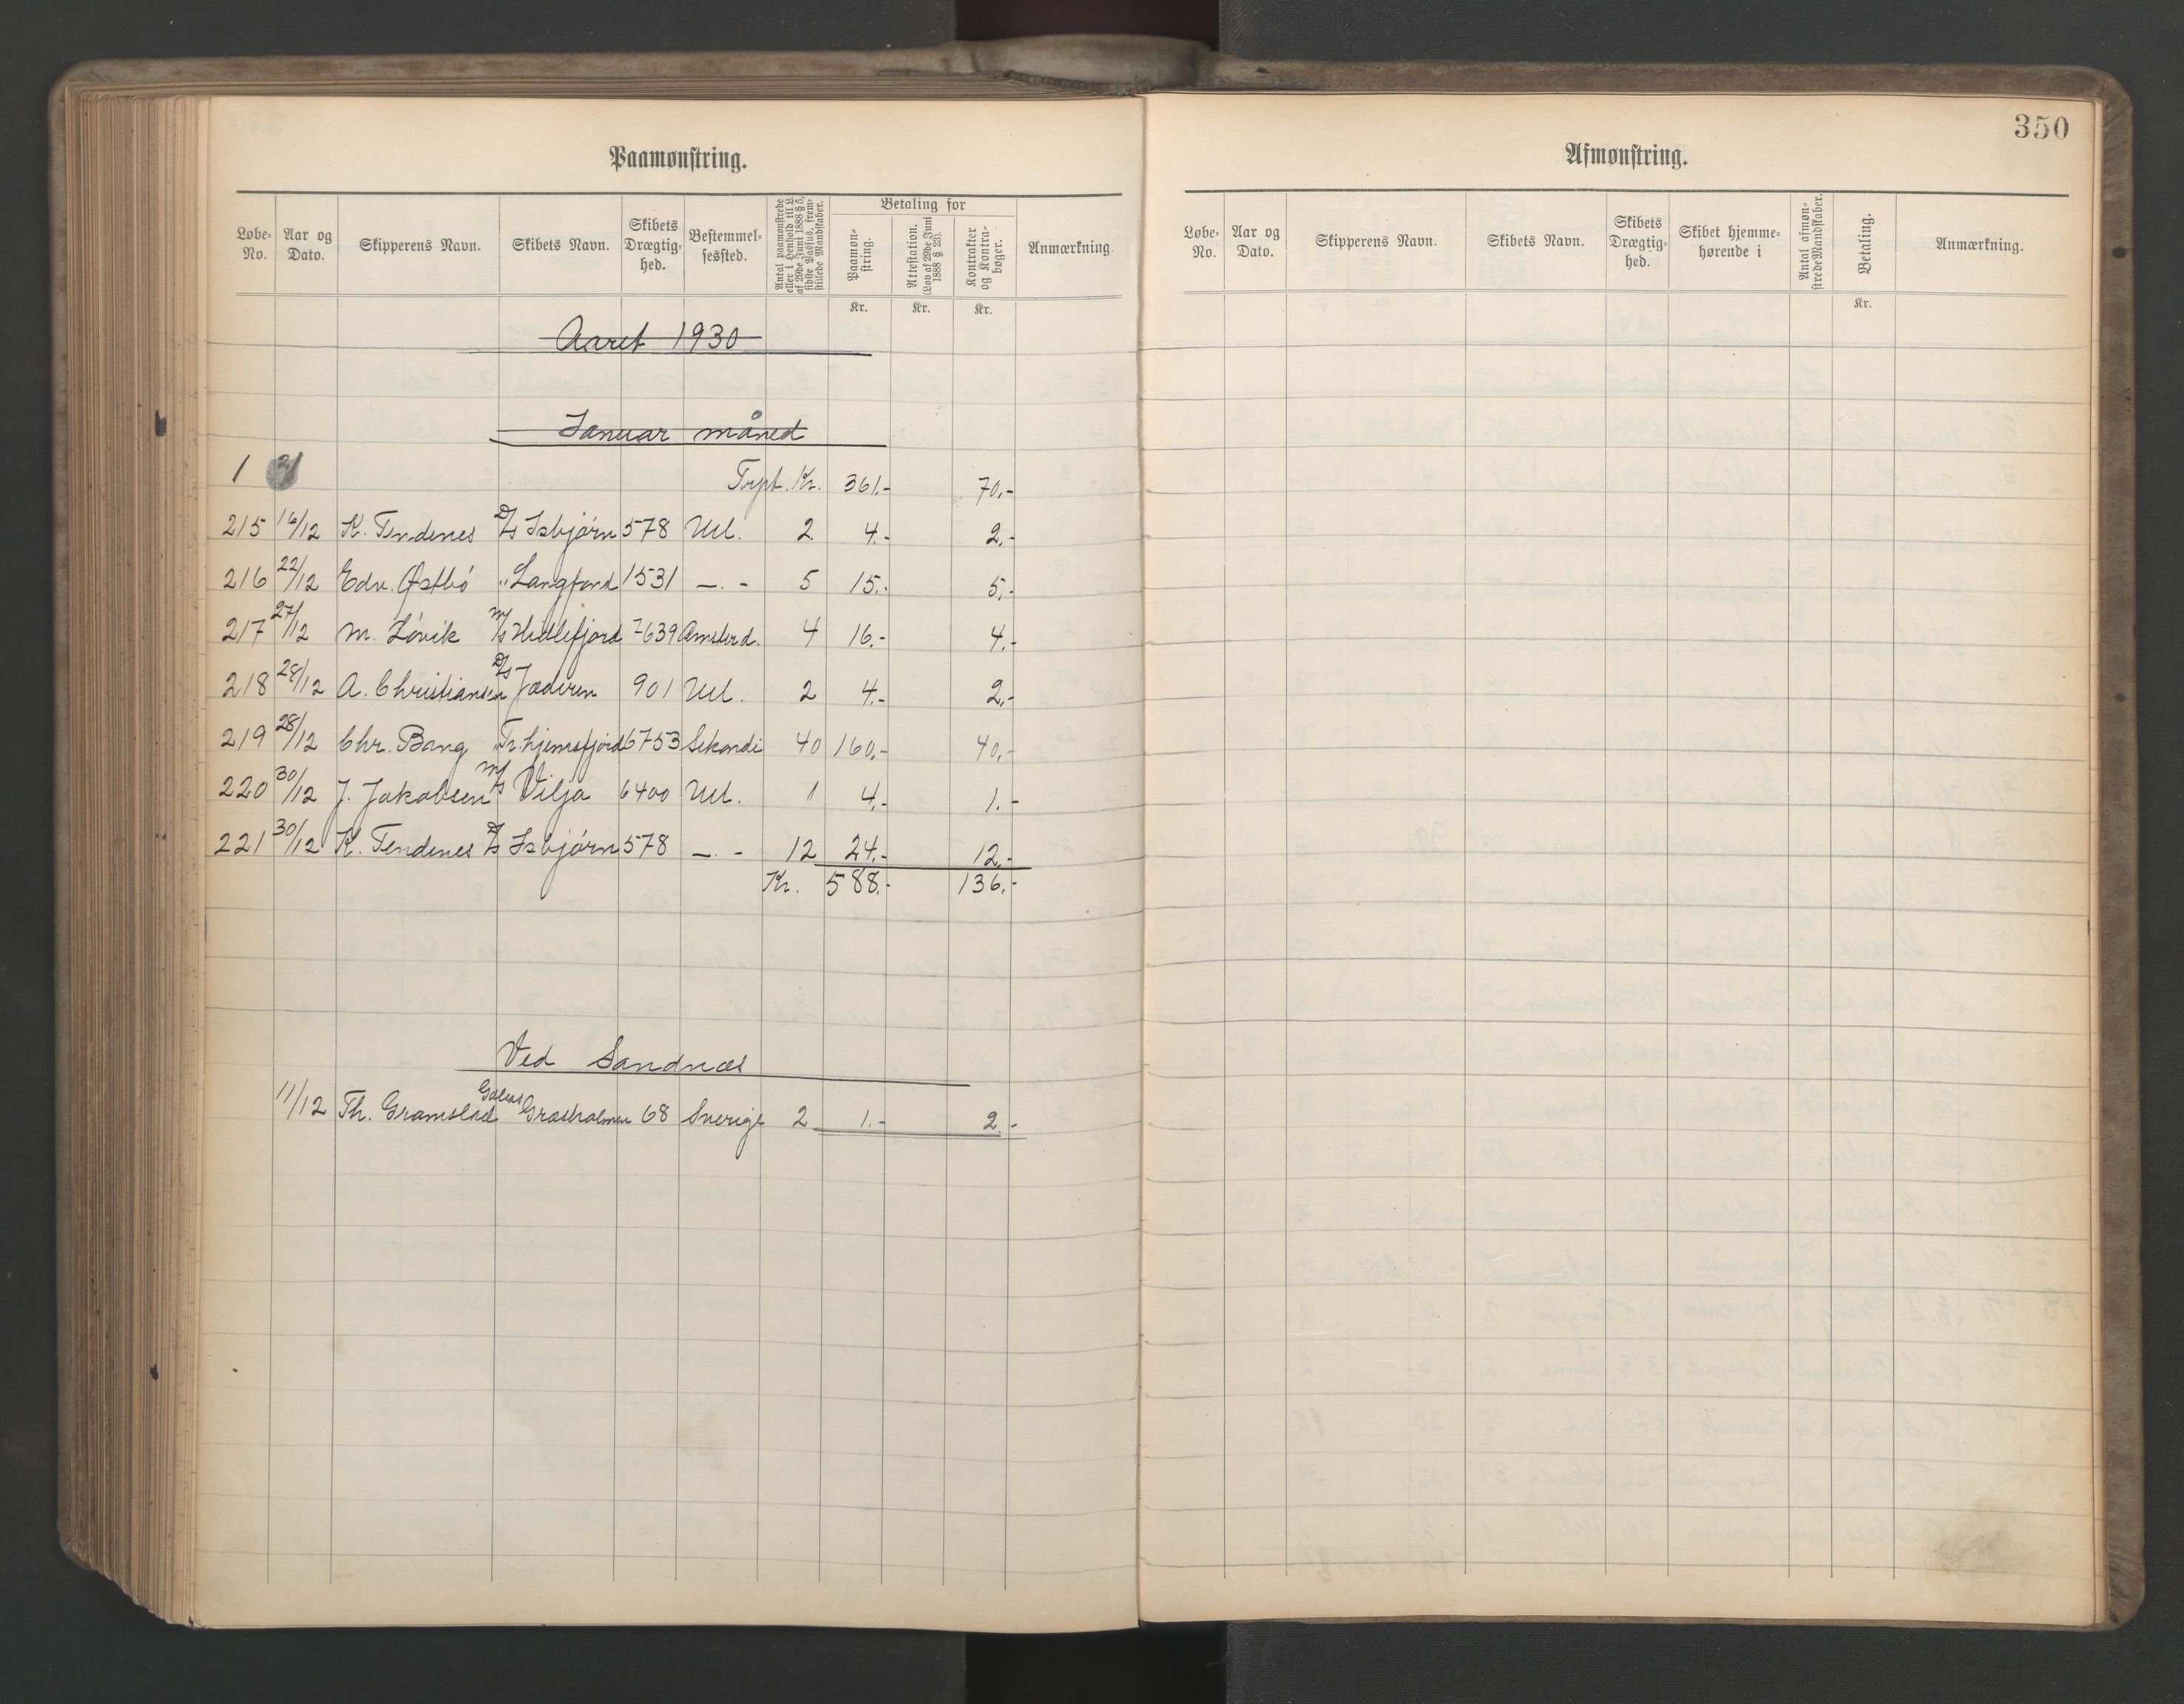 Paamønstring.
Løbe-No. Aar og Dato. Skipperens Navn. Skibets Navn. Skibets Drægtighed. Bestemmelsessted. Antal paamønstrede eller i Henhold til L. af 29de Juni 1888 § 5, sidste Passus, fremstillede Mandskaber. Betaling for Paamønstring. Attestation. (Lov af 29de Juni 1888 § 23). Kontrakter og Kontrabøger. Anmærkning.
Kr. Kr. Kr.
Aaret 1930
Januar måned
1
Trpt. Kr. 361.- 70.-
215 16/12 K. Tendenes D/s Isbjørn 578 Utl. 2 4.- 2.-
216 22/12 Edv. Østbó " Langfond 1531 -.- 5 15.- 5.-
217 27/12 M. Lóvik M/s Hidlefjord 7639 Amsterd. 4 16.- 4.-
218 28/12 A. Christiansen D/s Jæderen 901 Utl. 2 4.- 2.-
219 28/12 Chr. Bang " Tr.hjemsfjord 6753 Sekondi 40 160.- 40.-
220 30/12 J. Jakobsen M/s Vilja 6400 Utl. 1 4.- 1.-
221 30/12 K. Tendenes D/s Isbjórn 578 -.- 12 24.- 12.-
Kr. 588.- 136.-
Ved Sandnæs
11/12 Th. Gramstad Galeas Græsholmen 68 Sverige 2 1.- 2.-
350
Afmønstring.
Løbe-No. Aar og Dato. Skipperens Navn. Skibets Navn. Skibets Drægtighed. Skibet hjemmehørende i Antal afmønstrede Mandskaber. Betaling. Anmærkning.
Kr.